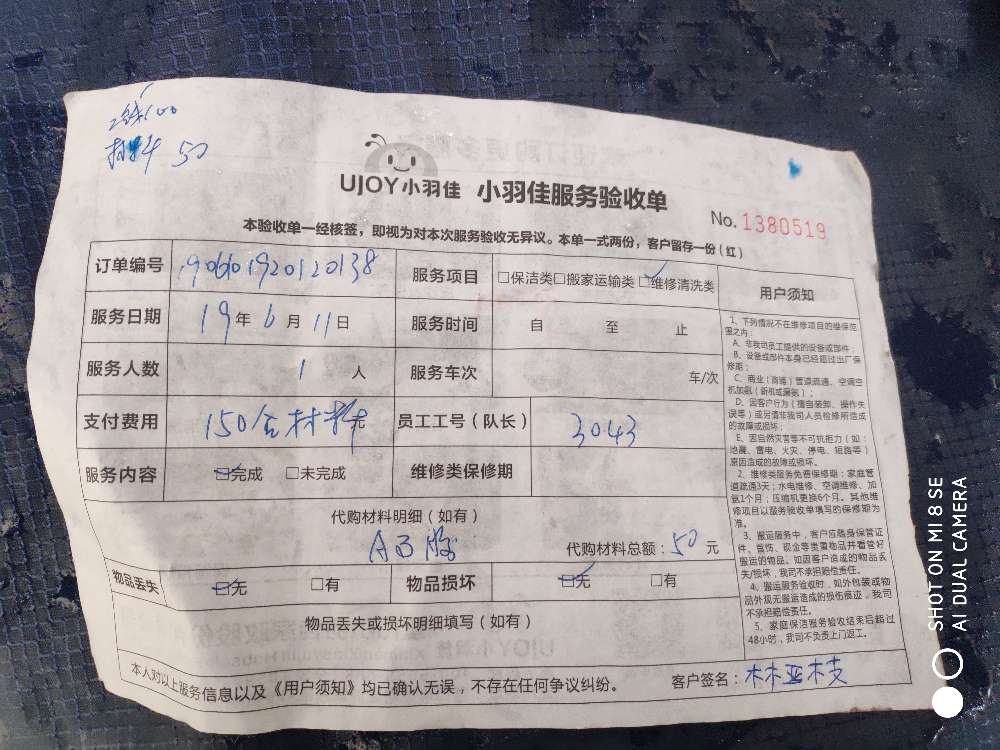 100
材料 50
UJOY小羽佳 小羽佳服务验收单
No. 1380519
本验收单一经核签，即视为对本次服务验收无异议。本单一式两份，客户留存一份（红）
订单编号 服务项目 □保洁类□搬家运输类 □维修清洗类 用户须知
服务日期 19年6月11日 服务时间 自 至 止
服务人数 1 人 服务车次 车/次
支付费用 150含材料元 员工工号（队长） 3043
服务内容 □完成 □未完成 维修类保修期
代购材料明细（如有）
AB胶 代购材料总额：50元
物品丢失 □无 □有 物品损坏 □无 □有
物品丢失或损坏明细填写（如有）
本人对以上服务信息以及《用户须知》均已确认无误，不存在任何争议纠纷。 客户签名：林亚枝
1、下列情况不在维修项目的维保范
围之内：
A、非我司员工提供的设备或部件
B、设备或部件本身已经超过出厂保
修期；
C、商业（商铺）管道疏通、空调空
机加氨（新机或漏氨）；
D、因客户行为（擅自装卸、操作失
误等）或另请非我司人员检修所造成
的故障或损坏；
E、因自然灾害等不可抗拒力（如：
地震、雷电、火灾、停电、短路等）
原因造成的故障或损坏。
2、维修类服务免费保修期：家庭管
道疏通3天；水电维修、空调维修、加
氨1个月；压缩机更换6个月。其他维
修项目以服务验收单填写的保修期为
准。
3、搬运服务中，客户应随身保管证
件、首饰、现金等贵重物品并看管好
搬运的物品。如因客户造成的物品丢
失/损坏，我司不承担赔偿责任。
4、搬运服务验收时，如外包装或物
品外观无搬运造成的损伤痕迹，我司
不承担赔偿责任。
5、家庭保洁服务验收结束后超过
48小时，我司不负责上门返工。
SHOT ON MI 8 SE
AI DUAL CAMERA